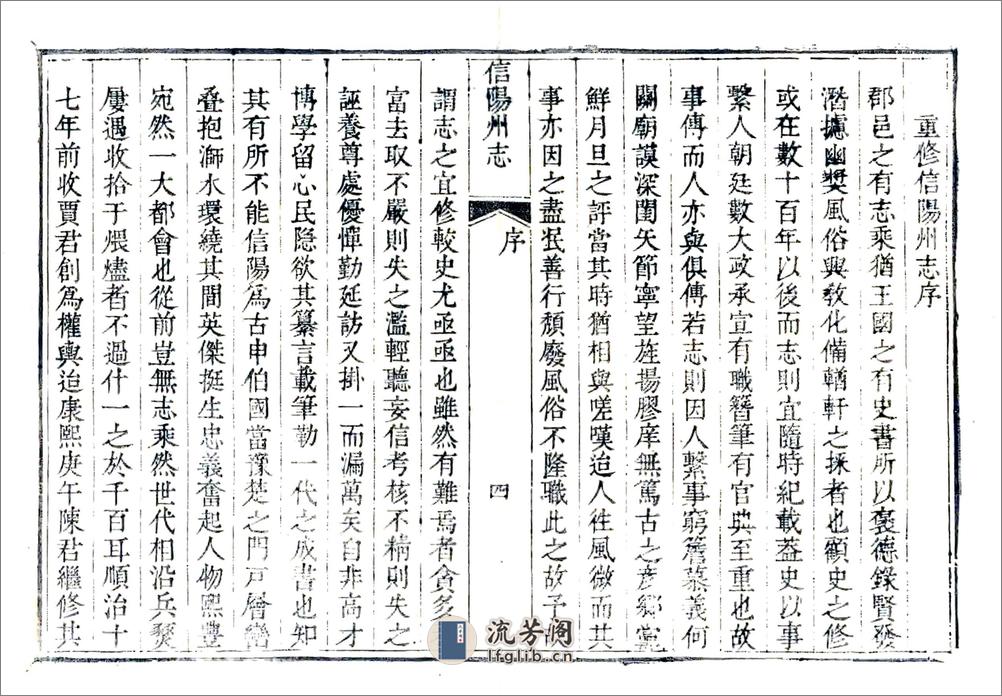 重修信陽州志序
郡邑之有志乘猶王國之有史書所以褒德錄賢發
潛攄幽奬風俗興敎化備輶軒之採者也顧史之修
或在數十百年以後而志則宜隨時紀載葢史以事
繫人朝廷數大政承宣有職簪筆有官典至重也故
事傳而人亦與俱傳若志則因人繫事窮簷慕義何
關廟謨深閨矢節寧望旌揚膠庠無篤古之彥鄉黨
鮮月旦之評當其時猶相與嗟嘆迨人徃風微而其
事亦因之盡泯善行頹廢風俗不隆職此之故予
信陽州志
序
四
謂志之宜修較史尤亟亟也雖然有難焉者貪多
富去取不嚴則失之濫輕聽妄信考核不精則失之
誣養尊處優憚勤延訪又掛一而漏萬矣自非高才
博學留心民隐欲其纂言載筆勒一代之成書也知
其有所不能信陽爲古申伯國當豫楚之門戸層巒
叠抱溮水環繞其間英傑挺生忠義奮起人物熙豐
宛然一大都會也從前豈無志乘然世代相沿兵燹
屢遇收拾于煨燼者不過什一之於千百耳順治十
七年前收賈君創爲權輿迨康熙庚午陳君繼修其
流芳阁
lfglib.cn